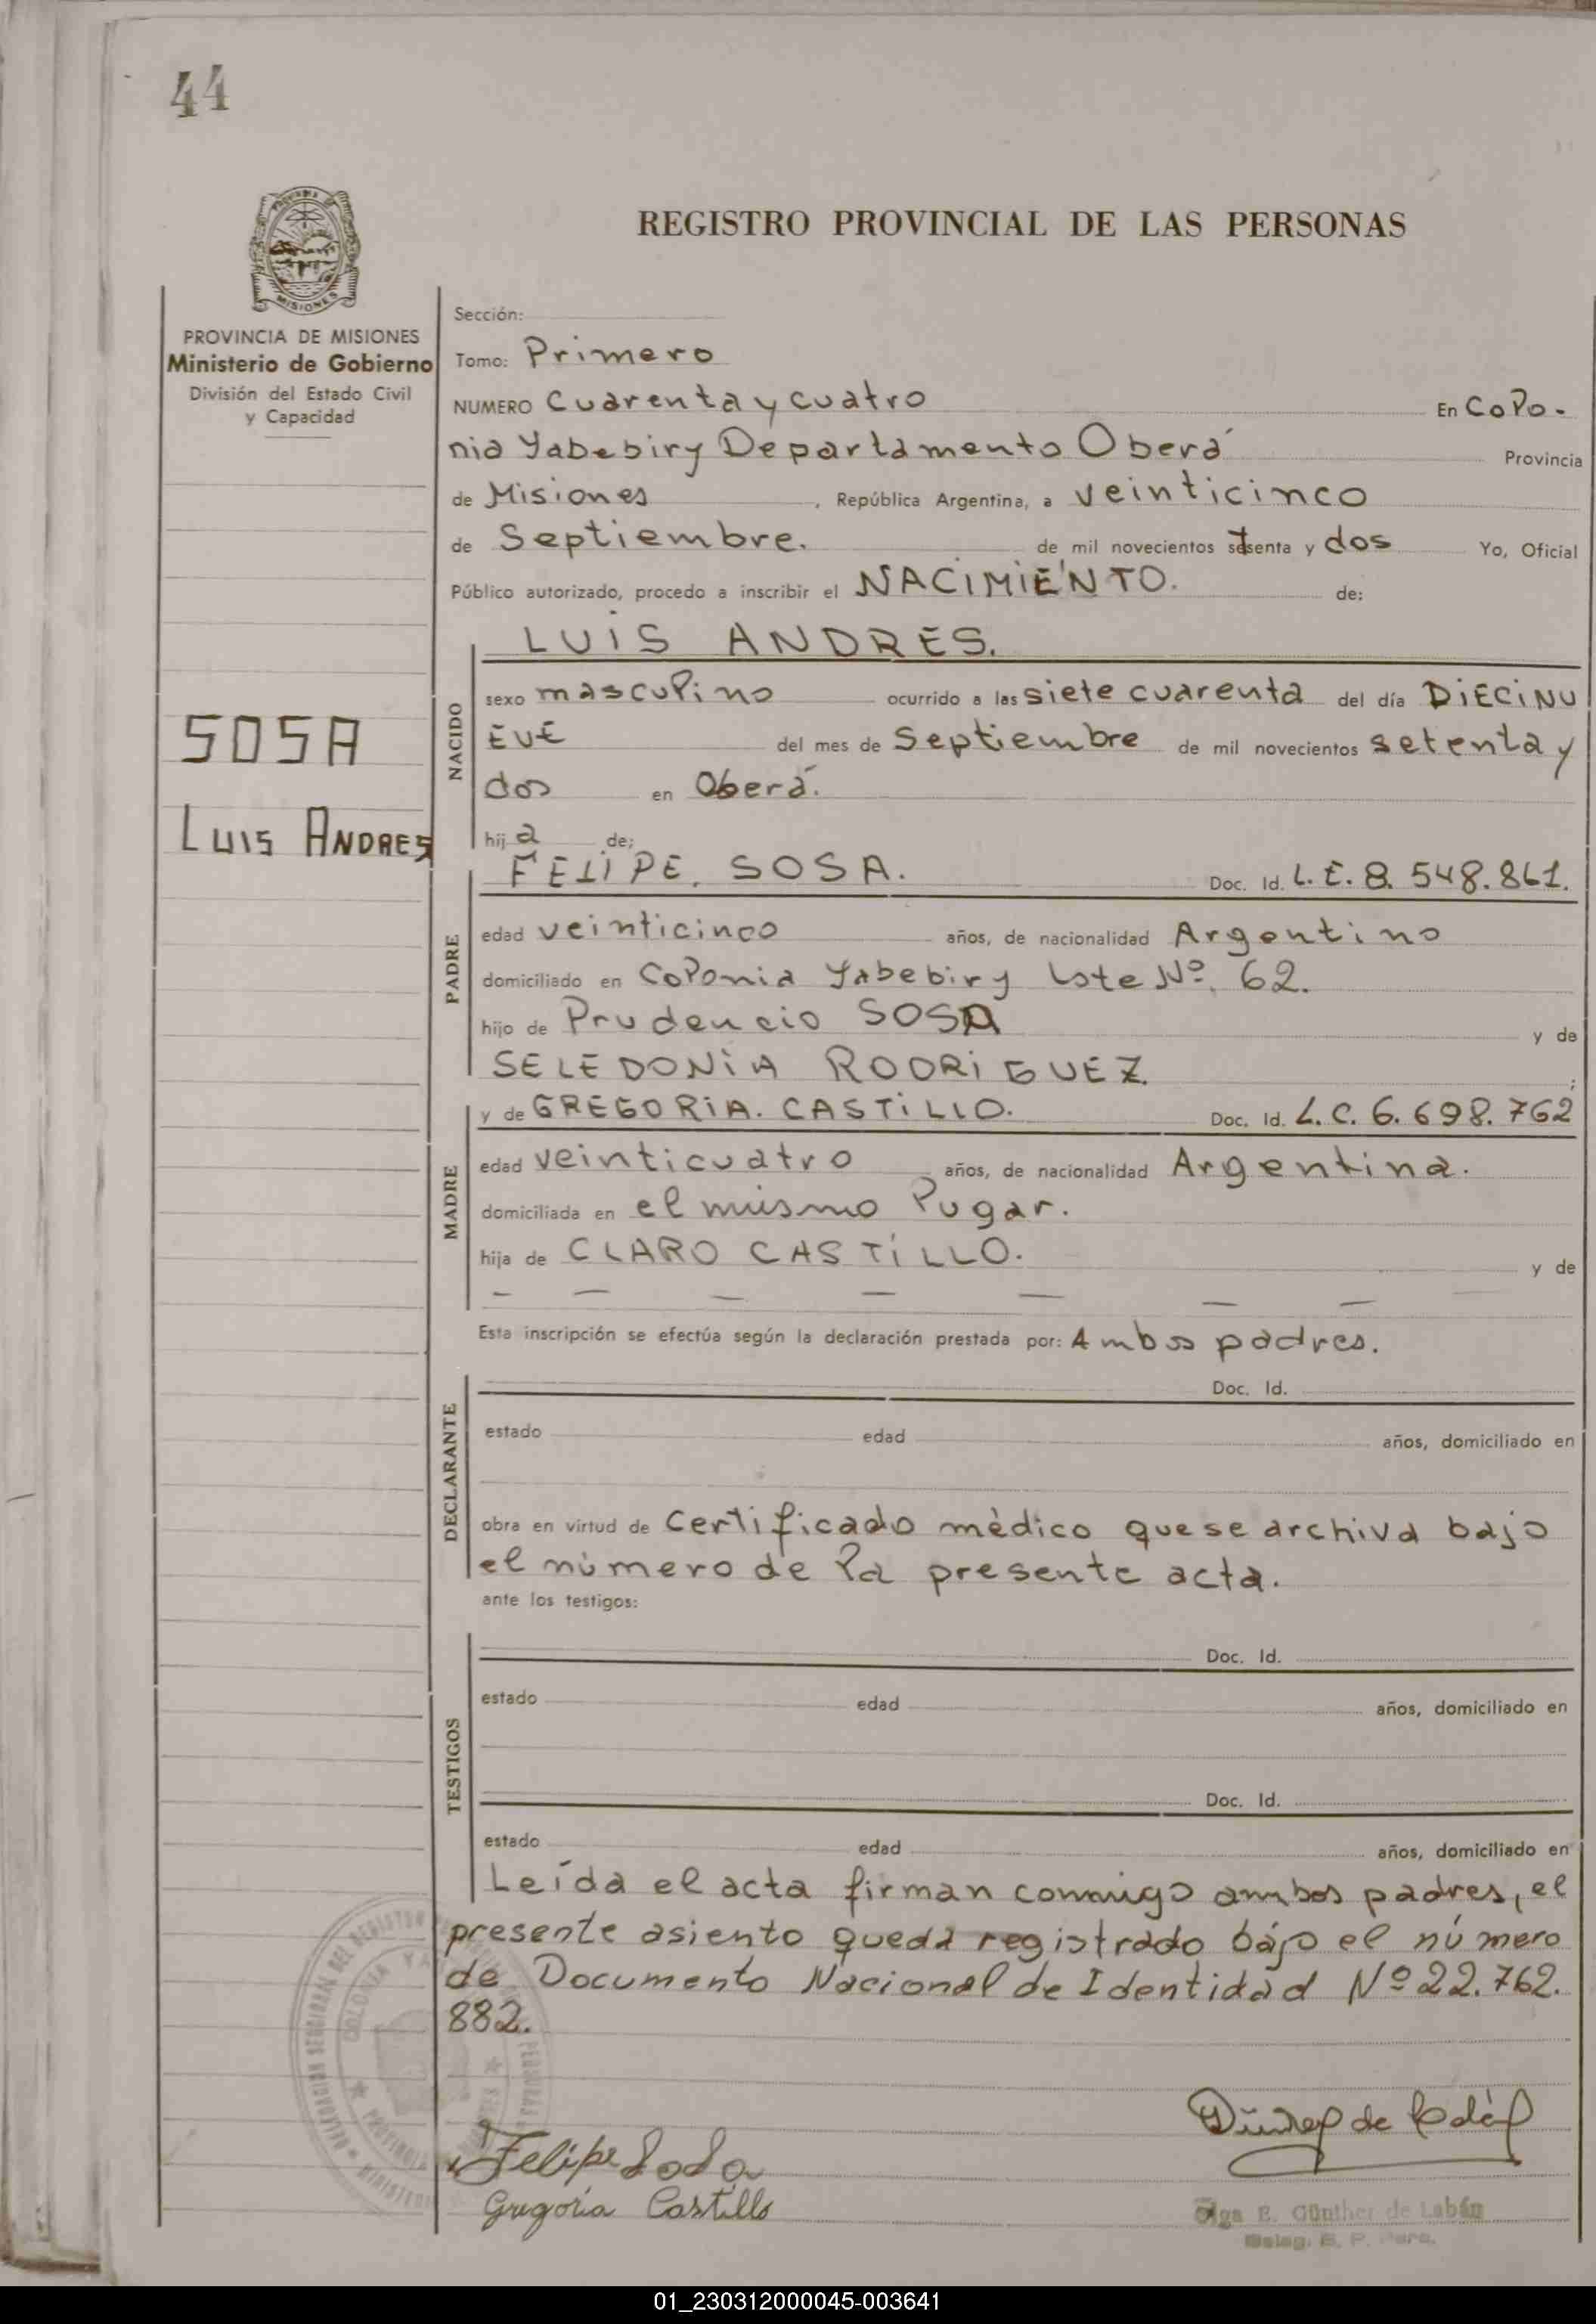 44
REGISTRO PROVINCIAL DE LAS PERSONAS
PROVINCIA DE MISIONES
Ministerio de Gobierno
División del Estado Civil
y Capacidad
Sección:
Tomo: Primero
NUMERO Cuarenta y cuatro En Colo-
nia Yabebiry Departamento Oberá Provincia
de Misiones, República Argentina, a veinticinco
de Septiembre. de mil novecientos setenta y dos Yo, Oficial
Público autorizado, procedo a inscribir el NACIMIENTO. de:
LUIS ANDRES.
SOSA
LUIS ANDRES
NACIDO
sexo masculino ocurrido a las siete cuarenta del día DIECINU
EVE del mes de Septiembre de mil novecientos setenta y
dos en Oberá.
hija de:
PADRE
FELIPE. SOSA. Doc. Id. L.E. 8.548.861.
edad veinticinco años, de nacionalidad Argentino
domiciliado en Colonia Yabebiry Lote Nº. 62.
hijo de Prudencio SOSA y de
SELEDONIA RODRIGUEZ. ;
MADRE
y de GREGORIA. CASTILLO. Doc. Id. L.C. 6.698.762
edad veinticuatro años, de nacionalidad Argentina.
domiciliada en el mismo lugar.
hija de CLARO CASTILLO. y de
— — — — — — —
Esta inscripción se efectúa según la declaración prestada por: Ambos padres.
DECLARANTE
Doc. Id.
estado edad años, domiciliado en
obra en virtud de Certificado médico que se archiva bajo
el número de la presente acta.
ante los testigos:
TESTIGOS
Doc. Id.
estado edad años, domiciliado en
Doc. Id.
estado edad años, domiciliado en
Leída el acta firman conmigo ambos padres, el
presente asiento queda registrado bajo el número
de Documento Nacional de Identidad Nº 22.762.
882.
Felipe Sosa
Gregoria Castillo
Olga E. Günther de Labán
01_230312000045-003641